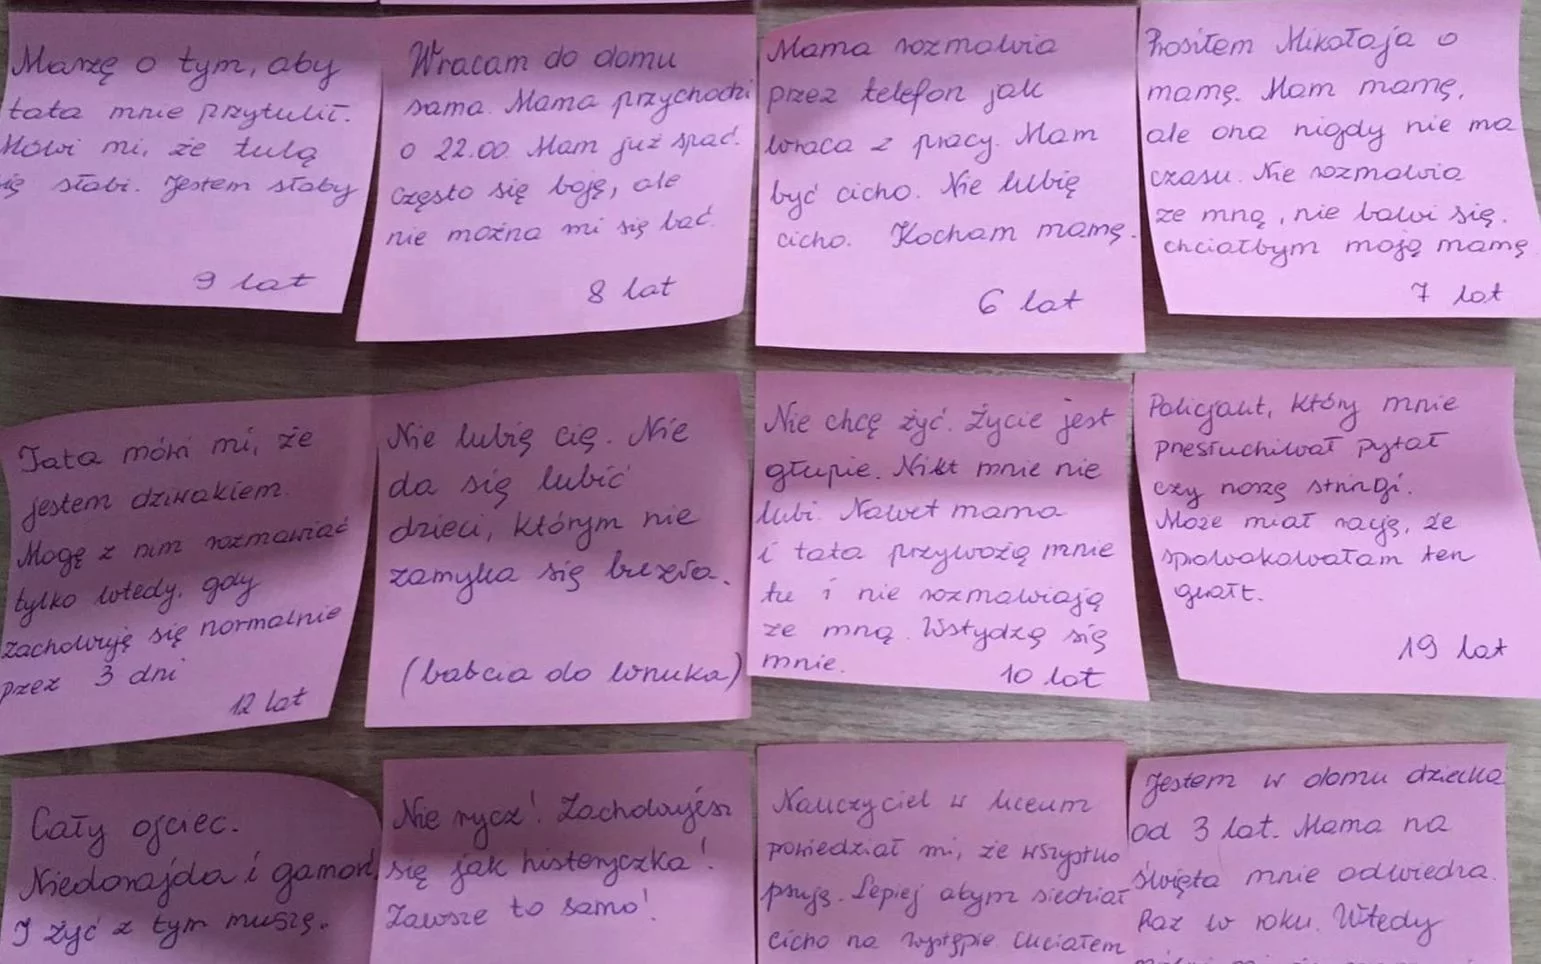 Marzę o tym, aby
tata mnie przytulił.
Mówi mi, że tulą
się słabi. Jestem słaby
9 lat
Wracam do domu
sama. Mama przychodzi
o 22.00. Mam już spać.
Często się boję, ale
nie można mi się bać.
8 lat
Mama rozmawia
przez telefon jak
wraca z pracy. Mam
być cicho. Nie lubię
cicho. Kocham mamę.
6 lat
Prosiłem Mikołaja o
mamę. Mam mamę,
ale ona nigdy nie ma
czasu. Nie rozmawia
ze mną, nie bawi się.
chciałbym moją mamę
7 lat
Tata mówi mi, że
jestem dziwakiem.
Mogę z nim rozmawiać
tylko wtedy, gdy
zachowuję się normalnie
przez 3 dni
12 lat
Nie lubię cię. Nie
da się lubić
dzieci, którym nie
zamyka się buzia.
(babcia do wnuka)
Nie chcę żyć. Życie jest
głupie. Nikt mnie nie
lubi. Nawet mama
i tata przywożą mnie
tu i nie rozmawiają
ze mną. Wstydzę się
mnie.
10 lat
Policjant, który mnie
przesłuchiwał pytał
czy noszę stringi.
Może miał rację, że
spowokowałam ten
gwałt.
19 lat
Cały ojciec.
Niedorajda i gamoń.
I żyć z tym muszę.
Nie rycz! Zachowujesz
się jak histeryczka!
Zawsze to samo!
Nauczyciel w liceum
powiedział mi, że wszystko
psuję. Lepiej abym siedział
cicho na występie. Chciałem
Jestem w domu dziecka
od 3 lat. Mama na
święta mnie odwiedza.
Raz w roku. Wtedy